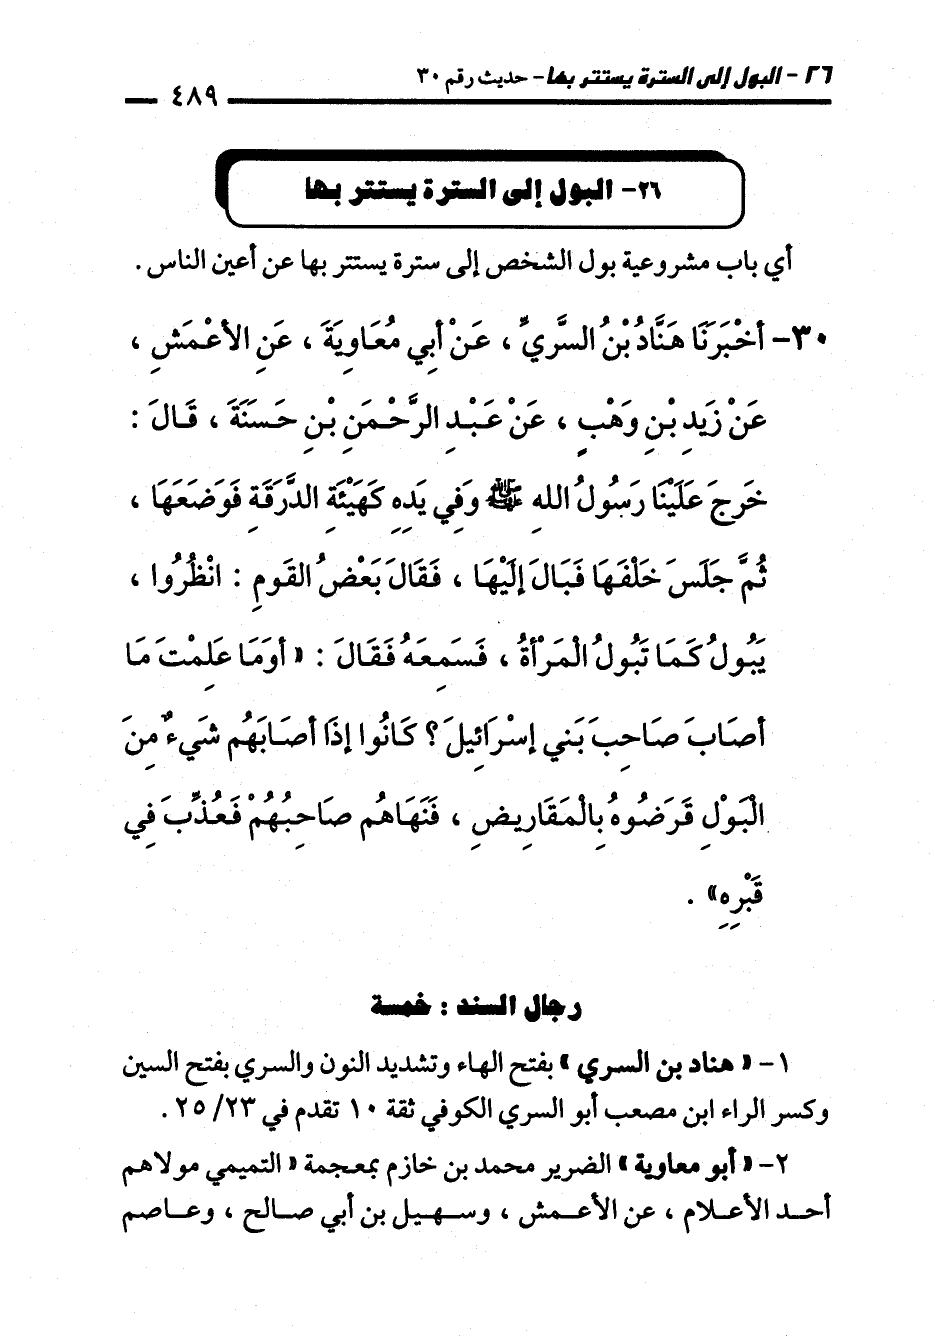 ٢٦ - البول إلى السترة يستتر بها - حديث رقم ٣٠
٤٨٩
٢٦- البول إلى السترة يستتر بها
أي باب مشروعية بول الشخص إلى سترة يستتر بها عن أعين الناس .
٣٠- أخْبَرَنَا هَنَّادُ بْنُ السَّرِيِّ ، عَنْ أبي مُعَاوِيَةَ ، عَنِ الأعْمَشِ ،
عَنْ زَيدِ بْنِ وَهْبٍ ، عَنْ عَبْدِ الرَّحْمَنِ بْنِ حَسَنَةَ ، قَالَ :
خَرجَ عَلَيْنَا رَسُولُ اللهِ ﷺ وَفِي يَدِهِ كَهَيْئَةِ الدَّرَقَةِ فَوَضَعَهَا ،
ثُمَّ جَلَسَ خَلْفَهَا فَبَالَ إلَيْهَا ، فَقَالَ بَعْضُ القَومِ : انْظُرُوا ،
يَبُولُ كَمَا تَبُولُ الْمَرْأةُ ، فَسَمِعَهُ فَقَالَ : « أوَمَا عَلِمْتَ مَا
أصَابَ صَاحِبَ بَني إسْرَائِيلَ ؟ كَانُوا إذَا أصَابَهُم شَيءٌ مِنَ
الْبَوْلِ قَرَضُوهُ بِالْمَقَارِيضِ ، فَنَهَاهُم صَاحِبُهُمْ فَعُذِّبَ فِي
قَبْرِهِ» .
رجال السند : خمسة
١- « هناد بن السري » بفتح الهاء وتشديد النون والسري بفتح السين
وكسر الراء ابن مصعب أبو السري الكوفي ثقة ١٠ تقدم في ٢٣/ ٢٥ .
٢- « أبو معاوية » الضرير محمد بن خازم بمعجمة « التميمي مولاهم
أحد الأعلام ، عن الأعمش ، وسهيل بن أبي صالح ، وعاصم